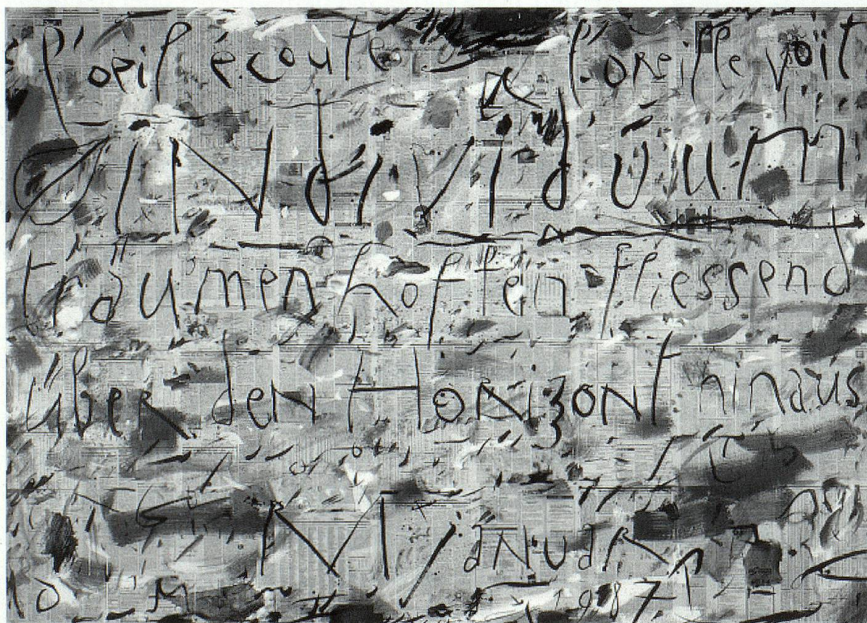 l'oeil écoute & l'oreille voit
INdividuum
träumen hoffen fliessend
über den Horizont hinaus
JANUAR
1987